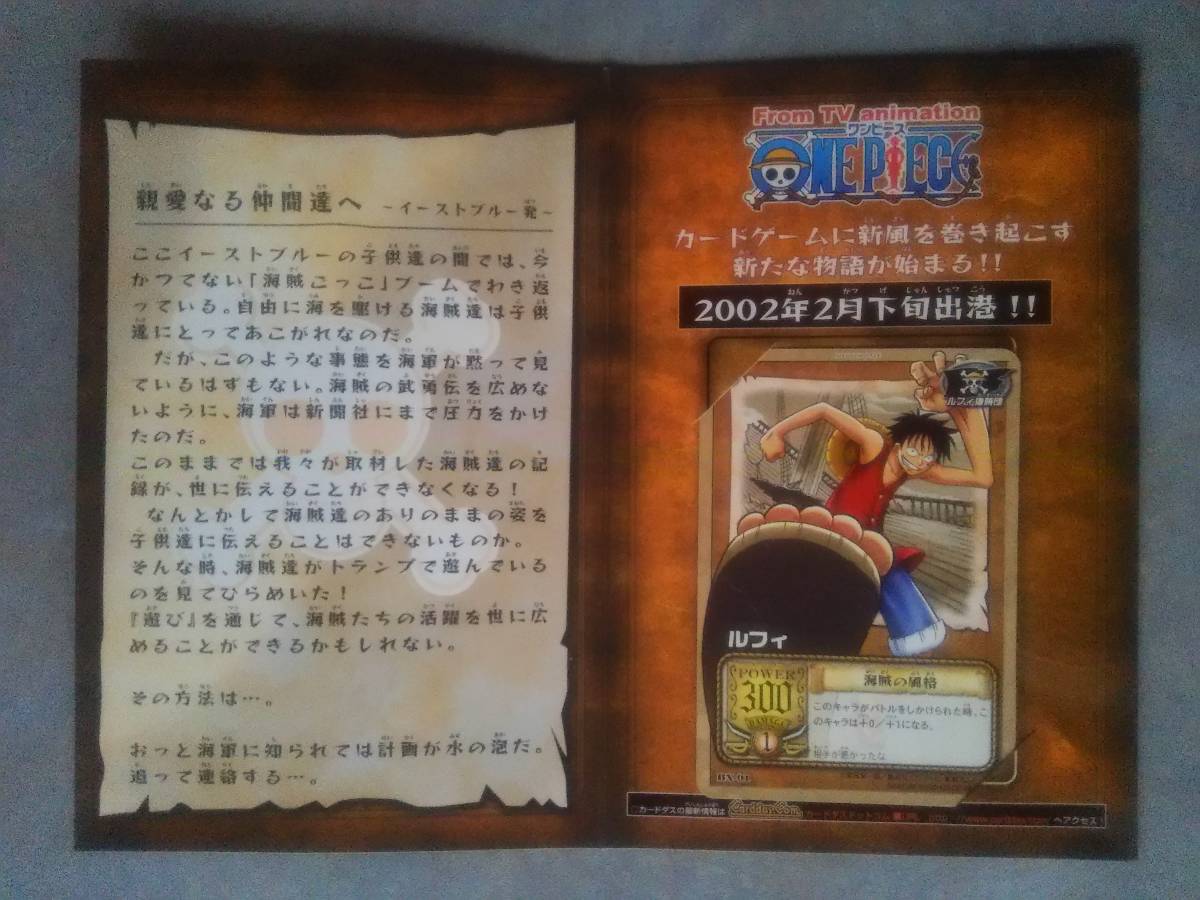 親愛なる仲間達へ ～イーストブルー発～
ここイーストブルーの子供達の間では、今
かつてない「海賊ごっこ」ブームでわき返
っている。自由に海を駆ける海賊達は子供
達にとってあこがれなのだ。
だが、このような事態を海軍が黙って見
ているはずもない。海賊の武勇伝を広めな
いように、海軍は新聞社にまで圧力をかけ
たのだ。
このままでは我々が取材した海賊達の記
録が、世に伝えることができなくなる！
なんとかして海賊達のありのままの姿を
子供達に伝えることはできないものか。
そんな時、海賊達がトランプで遊んでいる
のを見てひらめいた！
『遊び』を通じて、海賊たちの活躍を世に広
めることができるかもしれない。
その方法は…。
おっと海軍に知られては計画が水の泡だ。
追って連絡する…。
From TV animation
ワンピース
ONE PIECE
カードゲームに新風を巻き起こす
新たな物語が始まる!!
2002年2月下旬出港!!
ルフィ海賊団
ルフィ
POWER
300
DAMAGE
1
海賊の風格
このキャラがバトルをしかけられた時、こ
のキャラは+0/+1になる。
相手が悪かったな
カードダスの最新情報は Carddas.Com カードダスドットコム へアクセス！